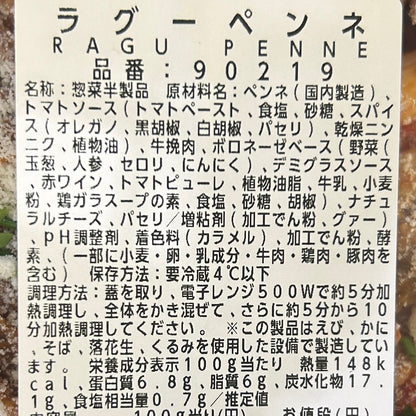 ラグーペンネ
RAGU PENNE
品番:90219
名称:惣菜半製品 原材料名:ペンネ(国内製造)、
トマトソース(トマトペースト、食塩、砂糖、スパイ
ス(オレガノ、黒胡椒、白胡椒、パセリ)、乾燥ニン
ニク、植物油)、牛挽肉、ボロネーゼベース(野菜(
玉葱、人参、セロリ、にんにく)、デミグラスソース
、赤ワイン、トマトピューレ、植物油脂、牛乳、小麦
粉、鶏ガラスープの素、食塩、砂糖、胡椒)、ナチュ
ラルチーズ、パセリ/増粘剤(加工でん粉、グァー)
、pH調整剤、着色料(カラメル)、加工でん粉、酵
素、(一部に小麦・卵・乳成分・牛肉・鶏肉・豚肉を
含む) 保存方法:要冷蔵4℃以下
調理方法:蓋を取り、電子レンジ500Wで約5分加
熱調理し、全体をかき混ぜて、さらに約5分から10
分加熱調理してください。 ※この製品はえび、かに
、そば、落花生、くるみを使用した設備で製造してい
ます。 栄養成分表示100g当たり 熱量148k
cal、蛋白質6.8g、脂質6g、炭水化物17.
1g、食塩相当量0.7g/推定値
内容量 100g当り(円) お値段(円)